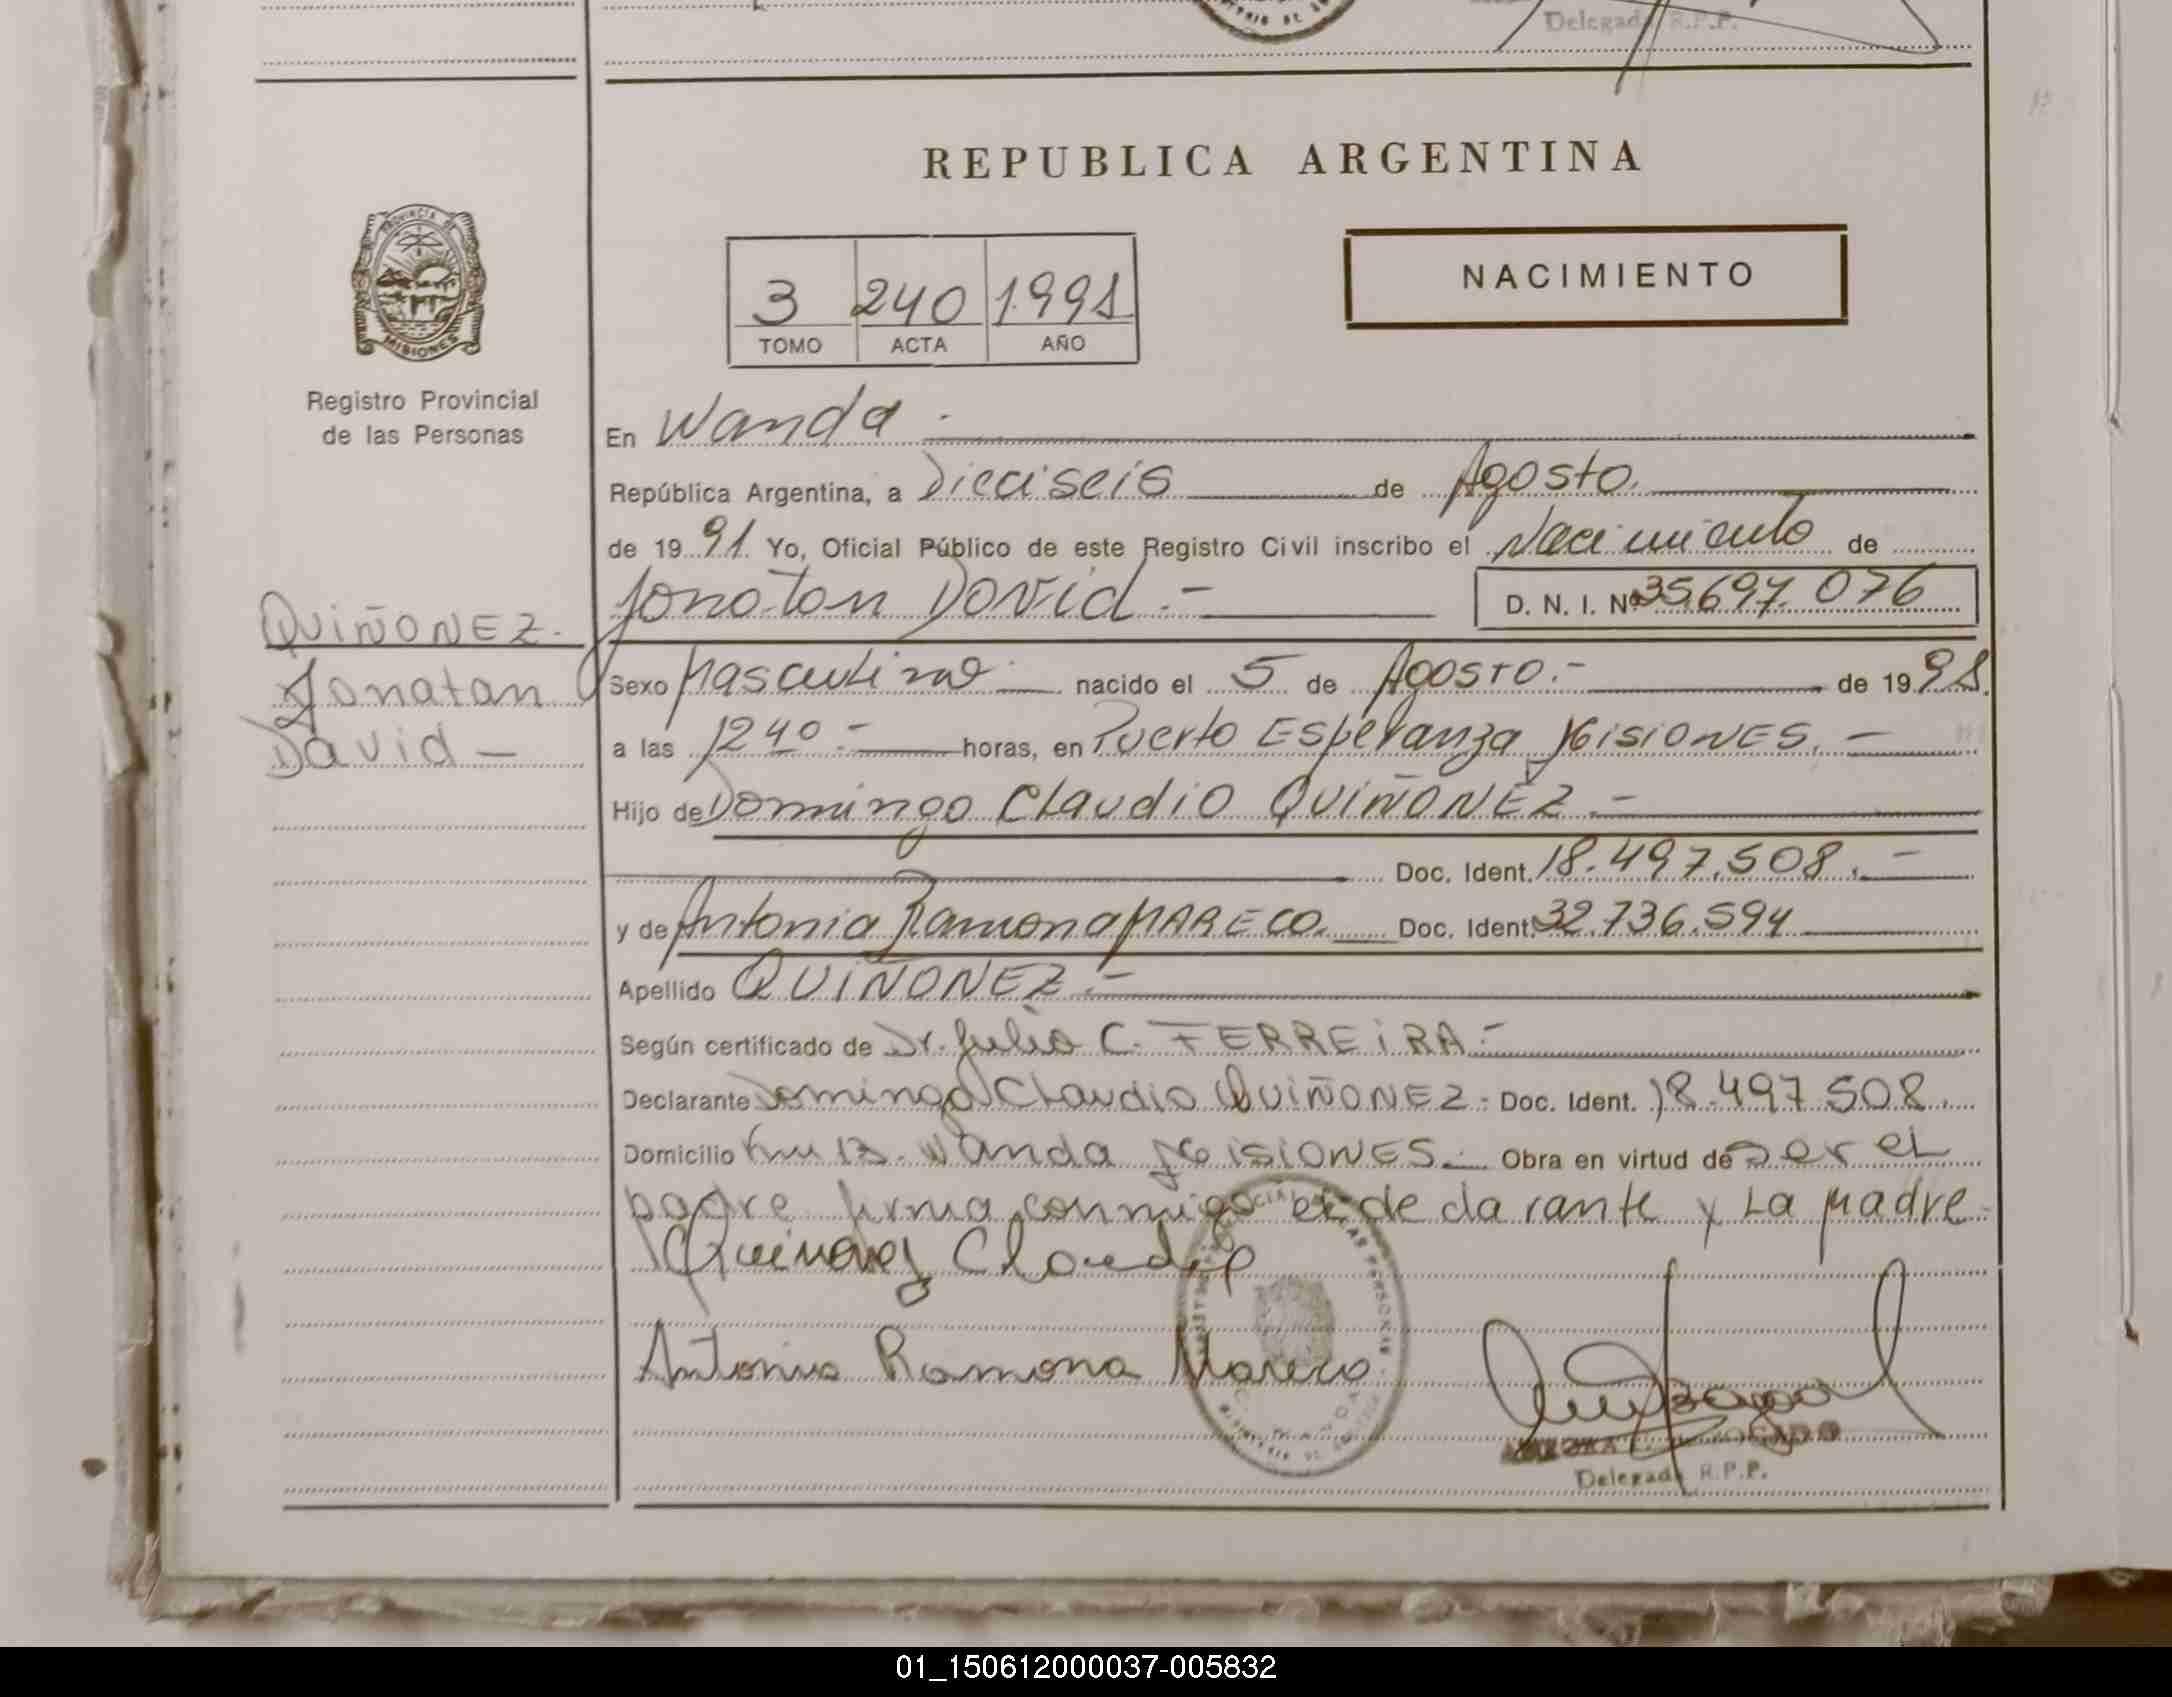 Delegada R.P.P.
REPUBLICA ARGENTINA
PROVINCIA DE
MISIONES
Registro Provincial
de las Personas
3 240 1991
TOMO ACTA AÑO
NACIMIENTO
En Wanda.
República Argentina, a Dieciseis de Agosto.
de 1991. Yo, Oficial Público de este Registro Civil inscribo el Nacimiento de
Jonatan David.- D. N. I. Nº 35.697.076
QUIÑONEZ.
Jonatan
David -
Sexo Masculino nacido el 5 de Agosto.- de 1991.
a las 12 40.- horas, en Puerto Esperanza Misiones. -
Hijo de Domingo Claudio QUIÑONEZ.-
Doc. Ident. 18.497.508.-
y de Antonia Ramona MARECO. Doc. Ident. 32.736.594
Apellido QUIÑONEZ.-
Según certificado de Dr. Julio C. FERREIRA.-
Declarante Domingo Claudio QUIÑONEZ- Doc. Ident. 18.497.508.
Domicilio Wanda Misiones. Obra en virtud de ser el
padre firma conmigo el declarante y La Madre-
Quinonez Claudio
Antonia Ramona Mareco
Delegada R.P.P.
01_150612000037-005832